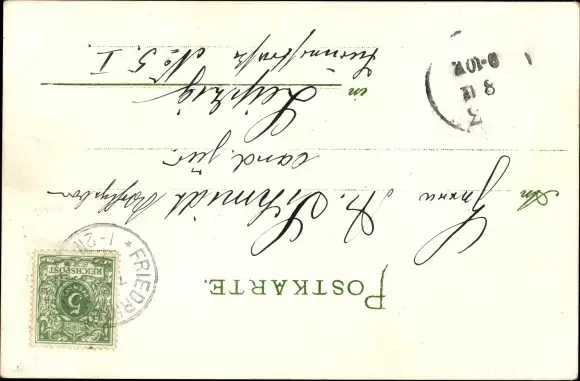 POSTKARTE.
An Herrn
A. Schmidt
cand. jur.
in Leipzig
No. 5. I
REICHSPOST
5
FRIEDR
1-2N
8 11
9-10V